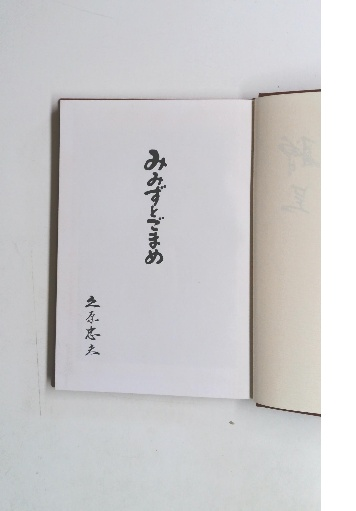 みみずとごまめ
立原忠夫